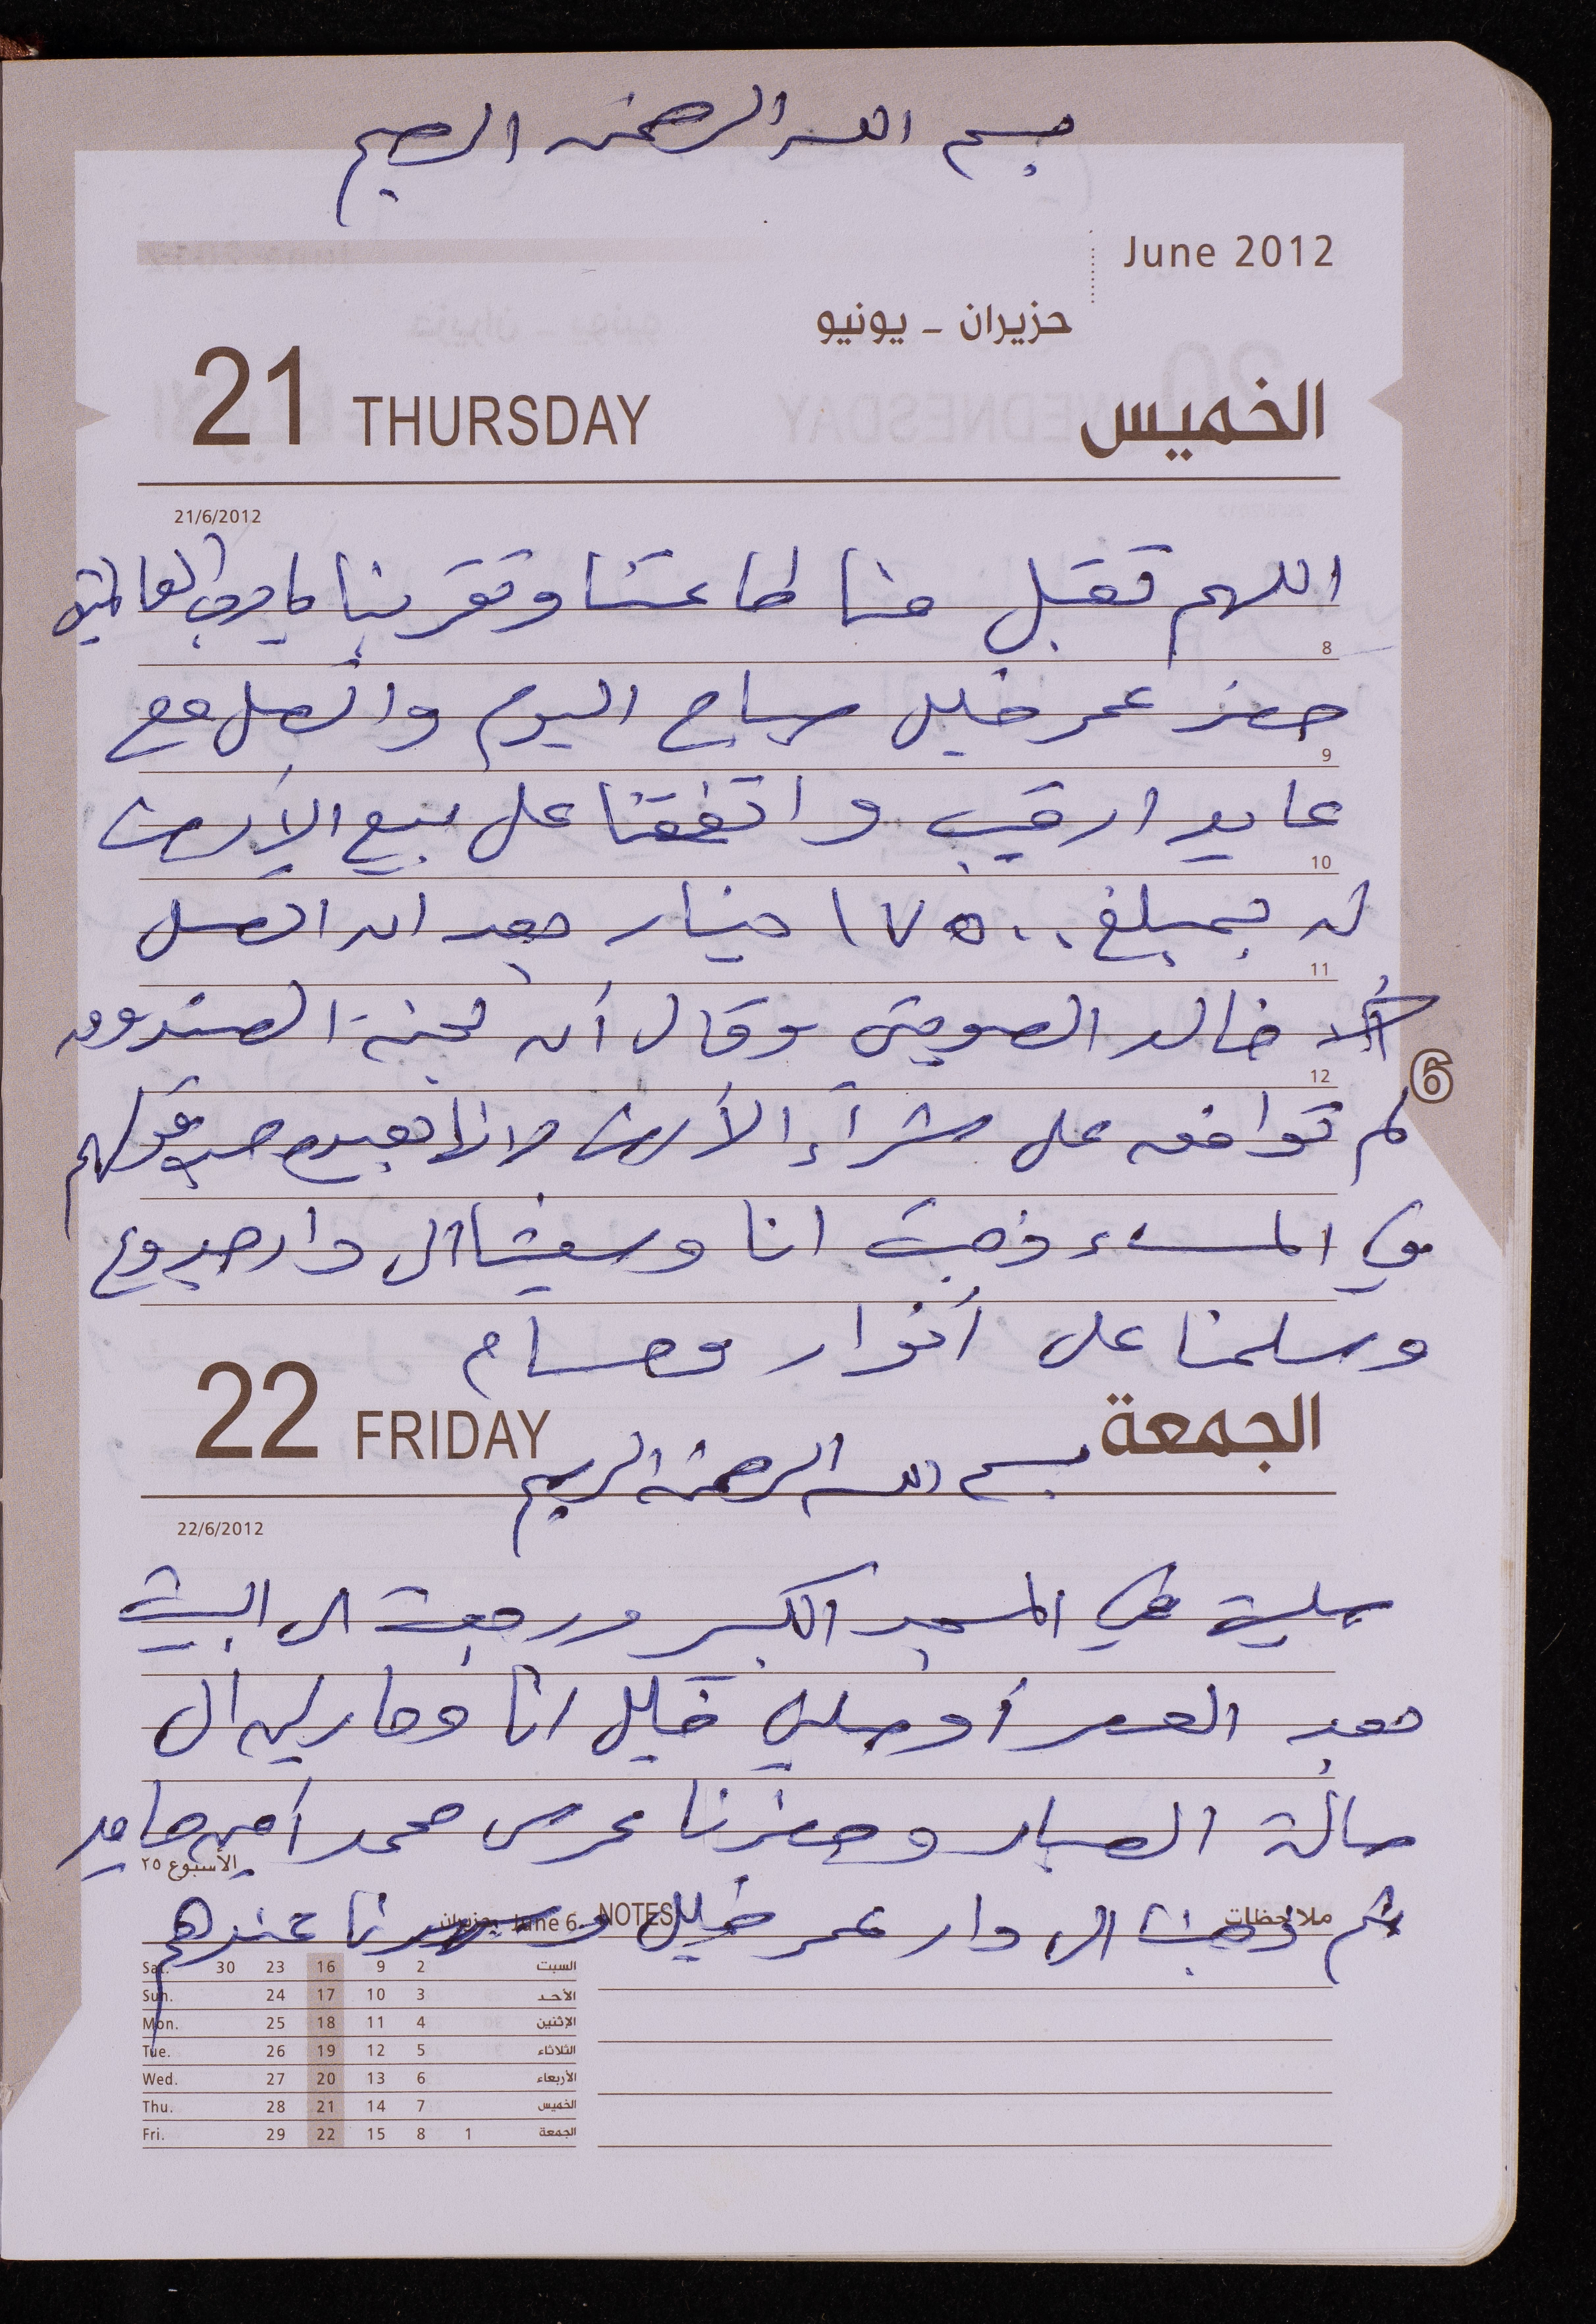 بسم الله الرحمن الرحيم
June 2012
حزيران - يونيو
21 THURSDAY الخميس
21/6/2012
اللهم تقبل منا طاعتنا وتقربنا يا رب العالمين
8
حضر عمر خليل صباح اليوم واتصل مع
9
عايد ارقيب واتفقنا على بيع الأرض
10
له بمبلغ ١٧٥٠٠ دينار بعد ان اتصل
11
خالد الصويتي وقال أن لجنة الصندوق
12
6
لم توافق على شرآء الأرض لانها بعيدة حسب قولهم
في المساء ذهبت انا وسفيتا الى دار جدوع
وسلمنا على أنوار وحسام
22 FRIDAY الجمعة
بسم الله الرحمن الرحيم
22/6/2012
صليت في المسجد الكبير ورجعت الى البيت
بعد العصر أوصلني خليل انا وماريان الى
صالة الصبار وحضرنا عرس محمد أمين حامد
الأسبوع ٢٥
ثم ذهبنا الى دار عمر خليل وسهرنا عندهم
ملاحظات NOTES June 6 حزيران
Sat. 30 23 16 9 2 السبت
Sun. 24 17 10 3 الأحد
Mon. 25 18 11 4 الإثنين
Tue. 26 19 12 5 الثلاثاء
Wed. 27 20 13 6 الأربعاء
Thu. 28 21 14 7 الخميس
Fri. 29 22 15 8 1 الجمعة